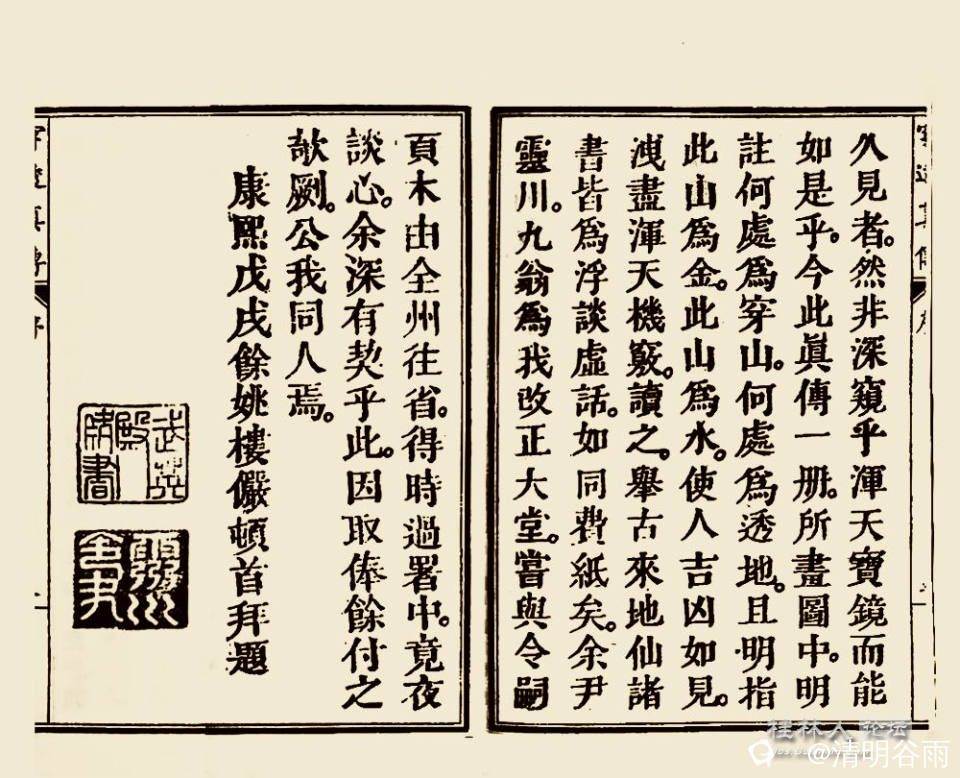 久見者。然非深窺乎渾天寶鏡而能
如是乎。今此眞傳一册。所畫圖中。明
註何處爲穿山。何處爲透地。且明指
此山爲金。此山爲水。使人吉凶如見。
洩盡渾天機竅。讀之。舉古來地仙諸
書皆爲浮談虛話。如同費紙矣。余尹
靈川。九翁爲我改正大堂。嘗與令嗣
頁木由全州往省。得時過署中。竟夜
談心。余深有契乎此。因取俸餘付之
欹劂。公我同人焉。
康熙戊戌餘姚樓儼頓首拜題
武英
殿
書
靈川
桂林人论坛
@清明谷雨